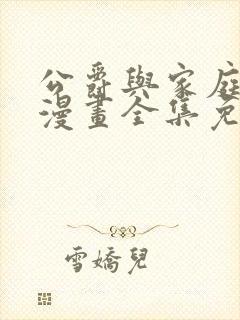 公爵與家庭
漫畫全集免
雪嬌兒